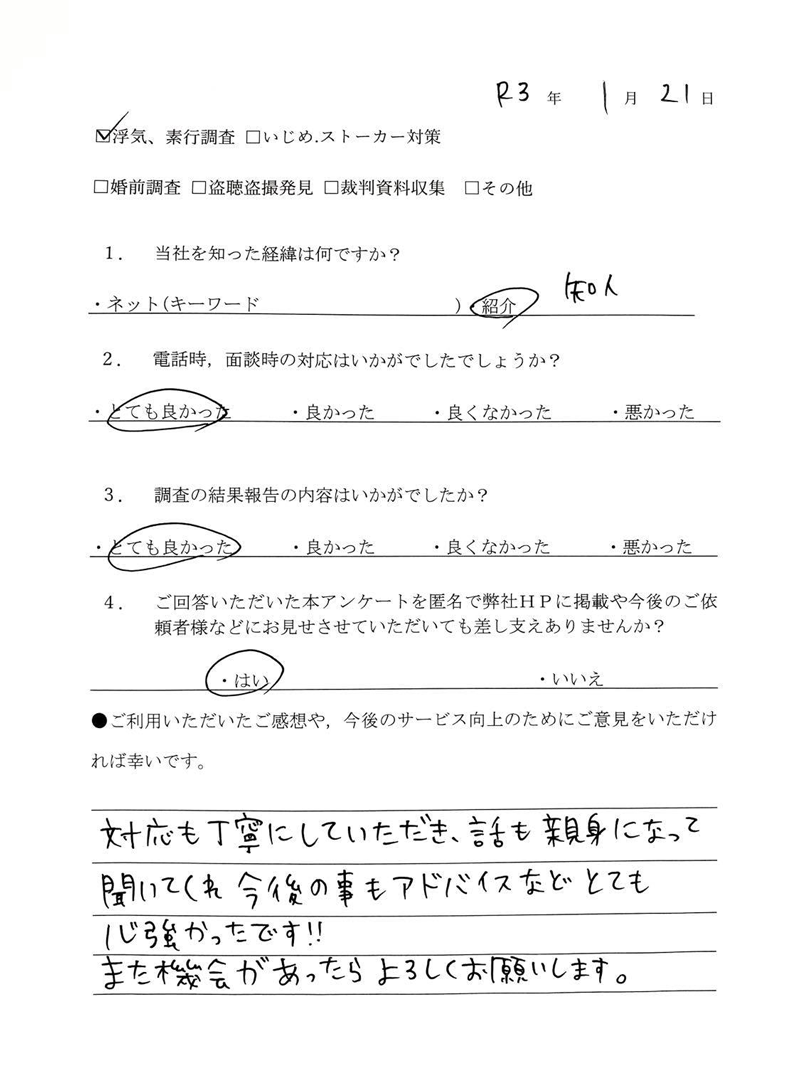 R3 年 1 月 21 日
☑浮気、素行調査 □いじめ.ストーカー対策
□婚前調査 □盗聴盗撮発見 □裁判資料収集 □その他
1. 当社を知った経緯は何ですか？
・ネット(キーワード )・紹介 知人
2. 電話時，面談時の対応はいかがでしたでしょうか？
・とても良かった ・良かった ・良くなかった ・悪かった
3. 調査の結果報告の内容はいかがでしたか？
・とても良かった ・良かった ・良くなかった ・悪かった
4. ご回答いただいた本アンケートを匿名で弊社ＨＰに掲載や今後のご依
頼者様などにお見せさせていただいても差し支えありませんか？
・はい ・いいえ
●ご利用いただいたご感想や，今後のサービス向上のためにご意見をいただけ
れば幸いです。
対応も丁寧にしていただき、話も親身になって
聞いてくれ今後の事もアドバイスなどとても
心強かったです!!
また機会があったらよろしくお願いします。